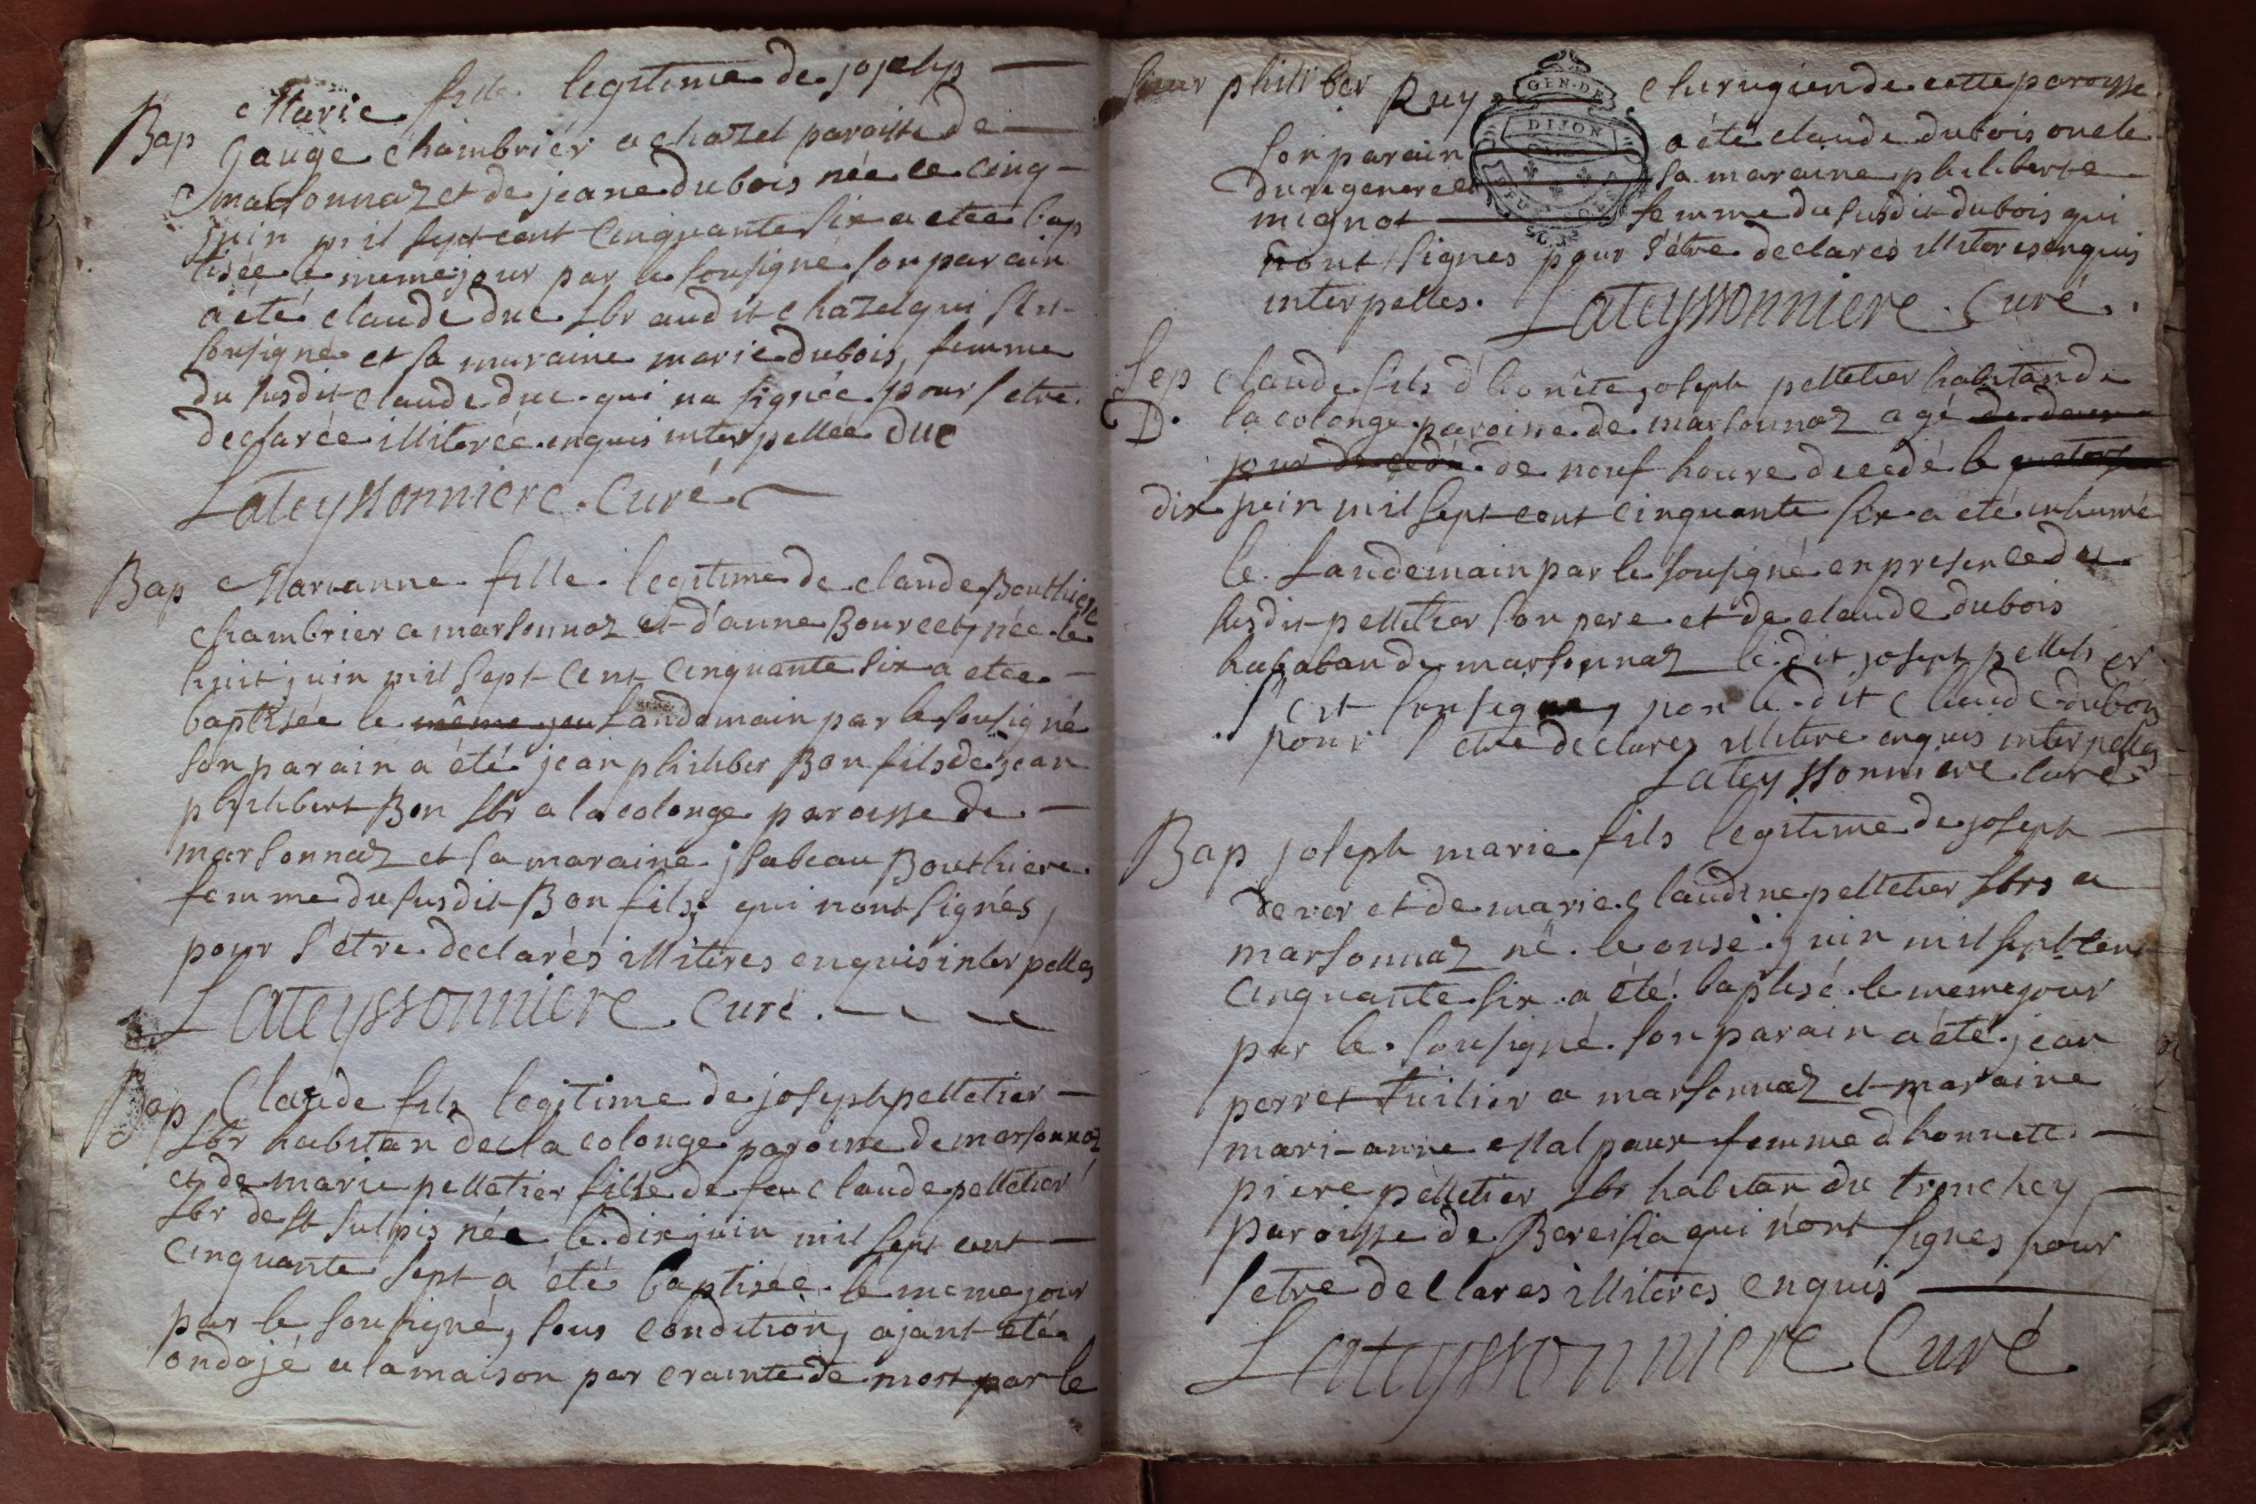 Bap Marie fille legitime de joseph
Gauge chambrier a chazel paroisse de
marsonnaz et de jeane dubois née le cinq
juin mil sept cent cinquante six a etée bap
tisée le meme jour par le sousigné son parain
a été claude duc lbr audit chazel qui s'est
sousigné et sa maraine marie dubois, femme
du susdit claude duc qui na signée pour s'etre
declarée illiterée enquis interpellée duc
Lateyssonniere Curé
Bap Marianne fille legitime de claude Bouthiere
chambrier a marsonnaz et d'anne Bourcet, née le
huit juin mil sept cent cinquante six a etée
baptisée le même jou landemain par le sousigné
son parain a été jean philiber Bon fils de jean
philibert Bon lbr a la colonge paroisse de
marsonnaz et sa maraine jsabeau Bouthiere
femme du susdit Bon fils, qui nont signés,
pour s'étre declarés illiteres enquis interpelles
Lateyssonniere Curé
Bap Claude fils legitime de joseph pelletier
lbr habitan de la colonge paroisse de marsonnaz
et de marie pelletier fille de feu claude pelletier
lbr de st sulpis née le dix juin mil sept cent
cinquante sept a été baptisée le meme jour
par le sousigné, sous condition, ajant etée
ondojé a la maison par crainte de mort par le
sieur philiber Ruy chirugien de cette paroisse
GEN. DE
DIJON
son parain a été claude dubois oncle
du regeneree sa maraine philiberte
mignot femme du susdit dubois qui
nont signes pour s'étre declarés illiteres enquis
interpelles. Lateyssonniere Curé
Sep claude fils d'honête joseph pelletier habitan de
D. la colonge paroisse de marsonnaz agé de deux
jour decedé de neuf heure decedé le
dix juin mil sept cent cinquante six a été inhumé
le landemain par le sousigné en presence du
susdit pelletier son pere et de claude dubois
de marsonnaz le dit joseph pelletier
s'est sousigné, non le dit claude dubois
pour s'etre declarez illitere enquis interpelles
Lateyssonniere curé
Bap joseph marie fils legitime de joseph
dever et de marie claudine pelletier lbrs a
marsonnaz né le onse juin mil sept cent
cinquante six a été baptisé le meme jour
par le sousigné son parain a été jean
perret tuilier a marsonnaz et maraine
mari-anne Malpaux femme d'honnete
piere pelletier lbr habitan du tronchey
paroisse de Bereisia qui n'ont signes pour
s'etre declares illiteres enquis
Lateyssonniere Curé